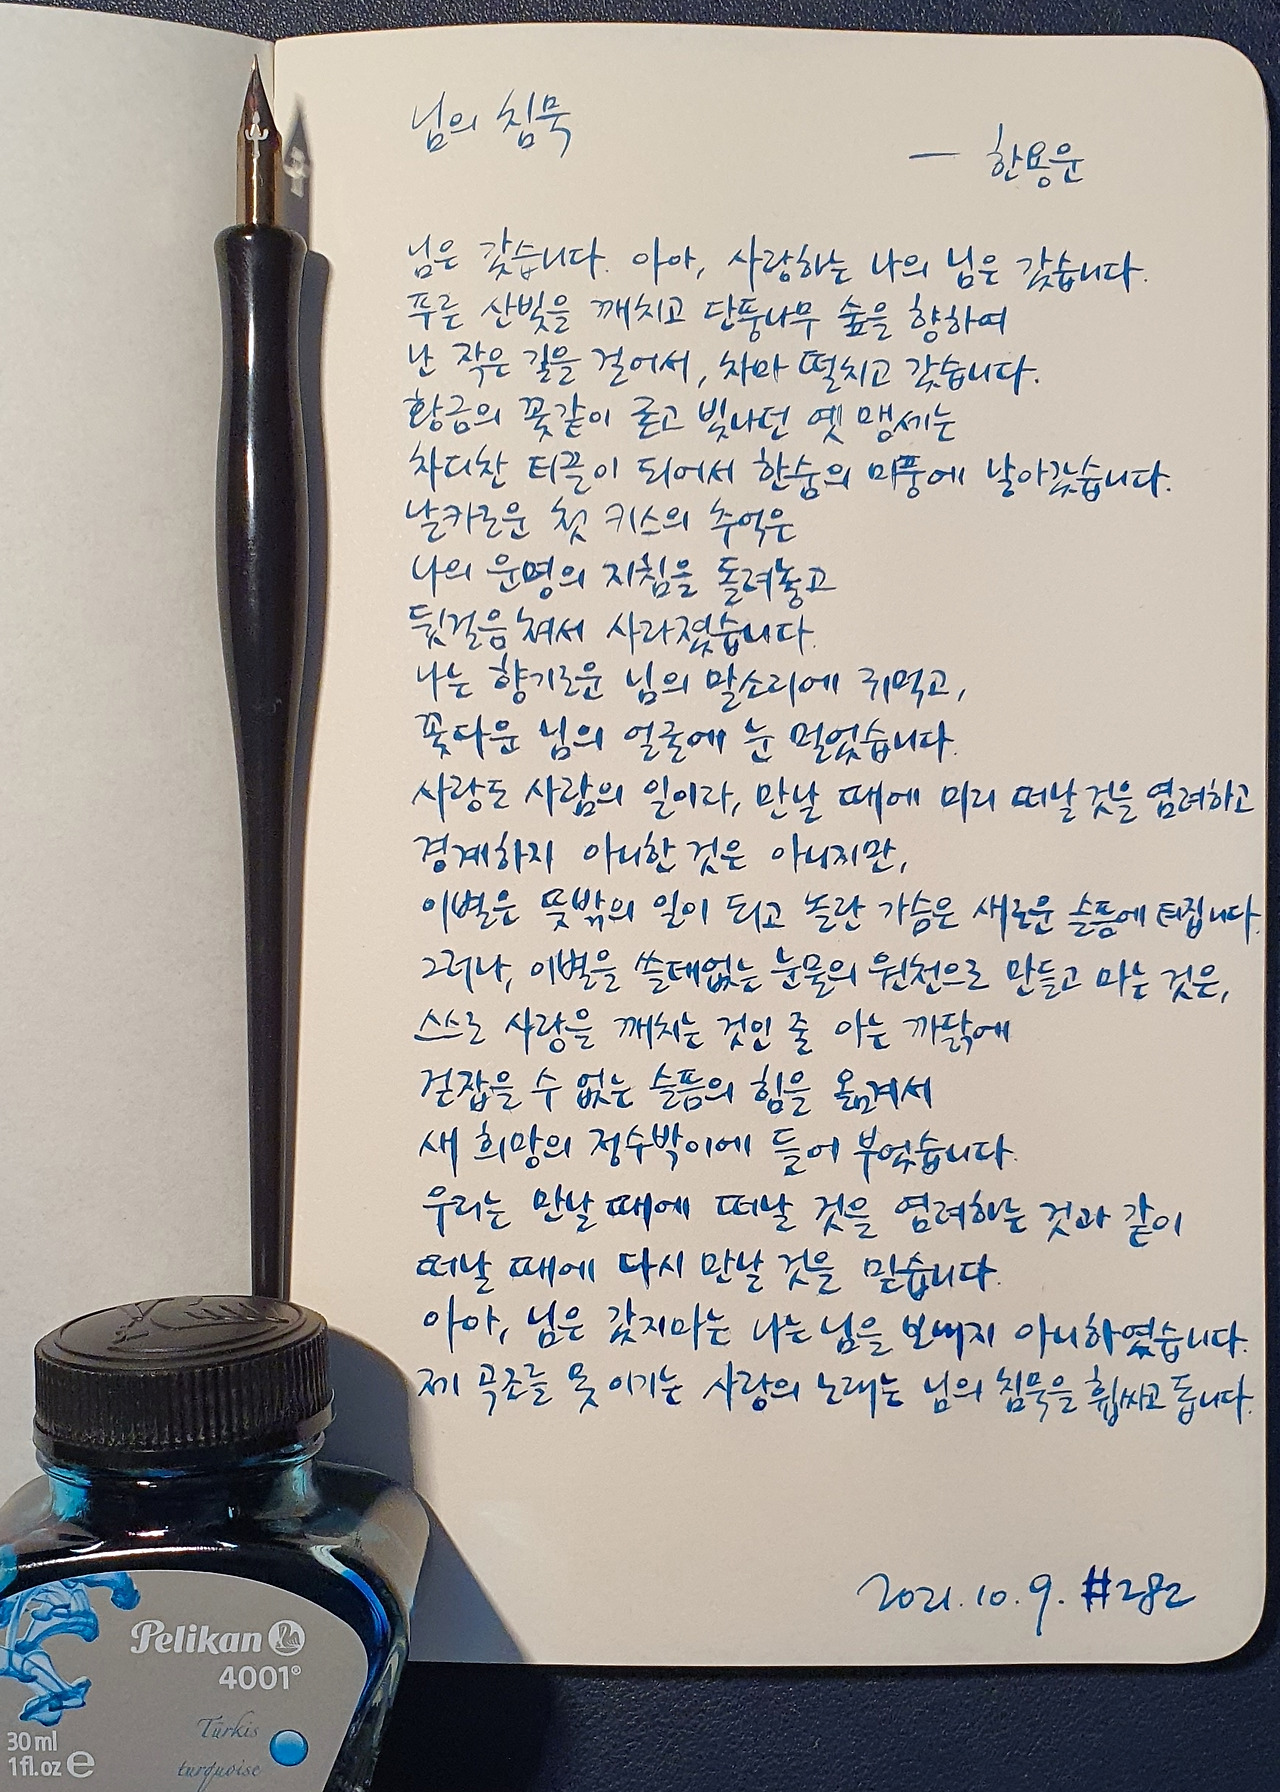 님의 침묵
— 한용운
님은 갔습니다. 아아, 사랑하는 나의 님은 갔습니다.
푸른 산빛을 깨치고 단풍나무 숲을 향하여
난 작은 길을 걸어서, 차마 떨치고 갔습니다.
황금의 꽃같이 굳고 빛나던 옛 맹세는
차디찬 티끌이 되어서 한숨의 미풍에 날아갔습니다.
날카로운 첫 키스의 추억은
나의 운명의 지침을 돌려놓고
뒷걸음쳐서 사라졌습니다.
나는 향기로운 님의 말소리에 귀먹고,
꽃다운 님의 얼굴에 눈 멀었습니다.
사랑도 사람의 일이라, 만날 때에 미리 떠날 것을 염려하고
경계하지 아니한 것은 아니지만,
이별은 뜻밖의 일이 되고 놀란 가슴은 새로운 슬픔에 터집니다.
그러나, 이별을 쓸데없는 눈물의 원천으로 만들고 마는 것은,
스스로 사랑을 깨치는 것인 줄 아는 까닭에
걷잡을 수 없는 슬픔의 힘을 옮겨서
새 희망의 정수박이에 들어 부었습니다.
우리는 만날 때에 떠날 것을 염려하는 것과 같이
떠날 때에 다시 만날 것을 믿습니다.
아아, 님은 갔지마는 나는 님을 보내지 아니하였습니다.
제 곡조를 못 이기는 사랑의 노래는 님의 침묵을 휩싸고 돕니다.
2021. 10. 9. #282
Pelikan
4001®
Türkis
turquoise
30 ml
1 fl.oz ℮